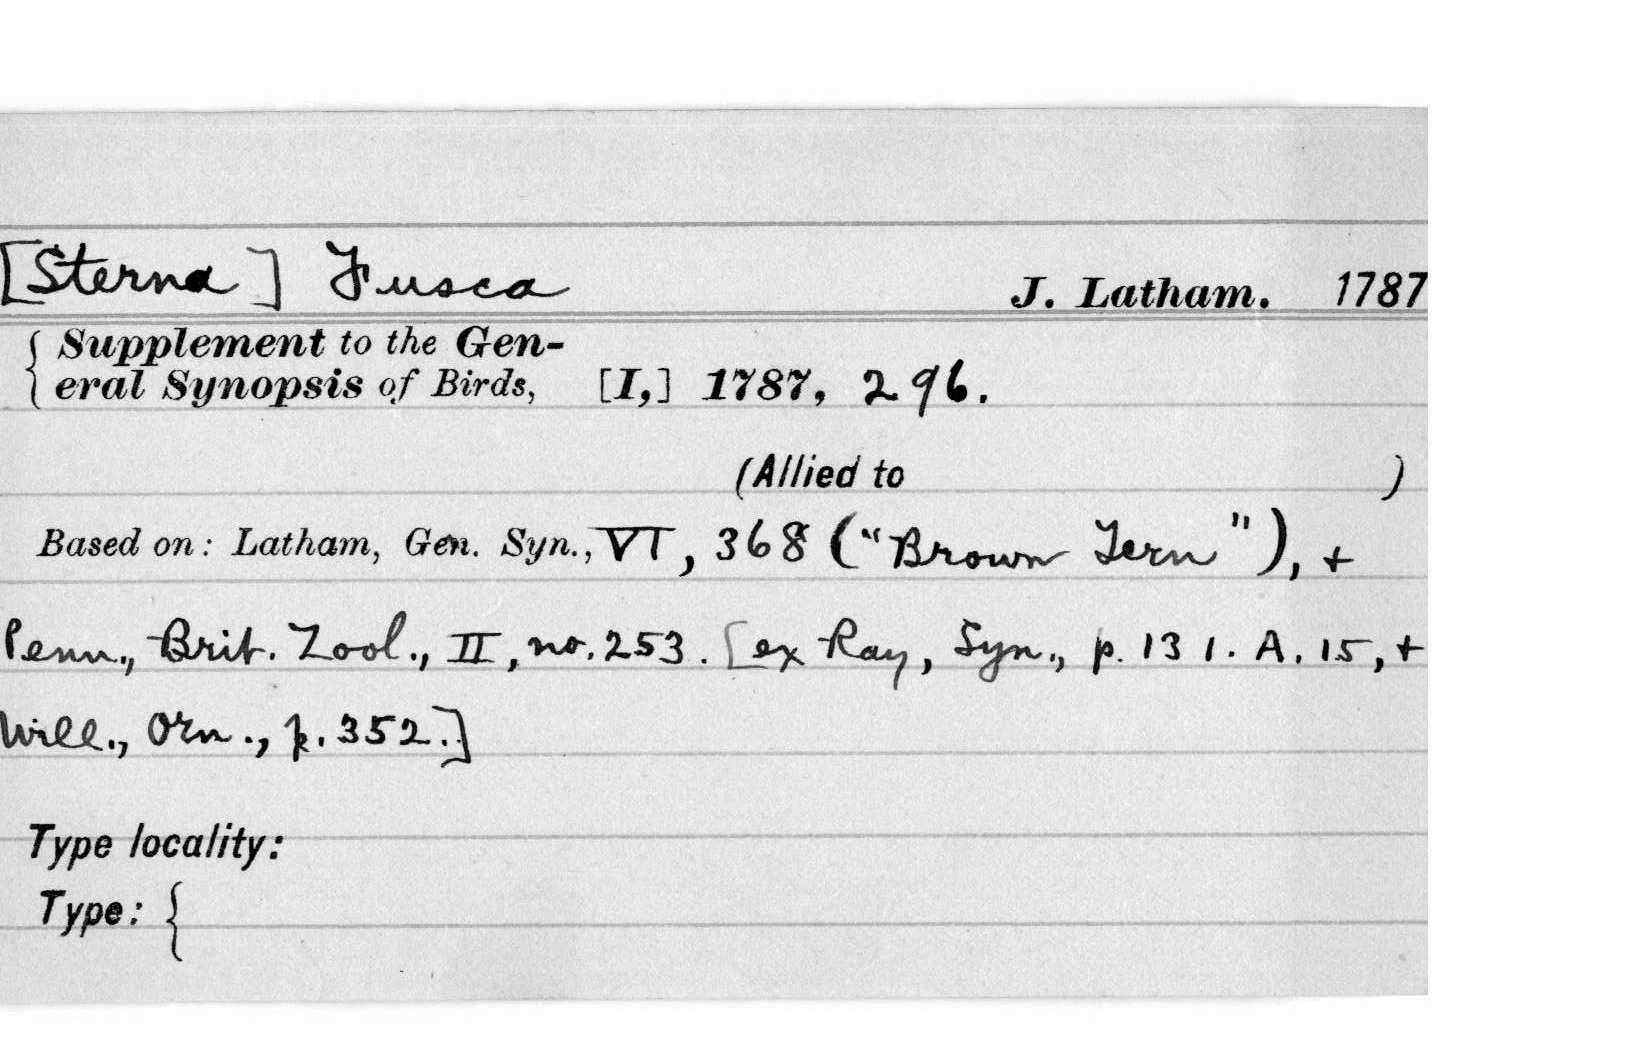 [Sterna] Fusca J. Latham. 1787
{ Supplement to the Gen-
eral Synopsis of Birds, [I,] 1787, 296.
(Allied to )
Based on: Latham, Gen. Syn., VI, 368 ("Brown Tern"), +
Penn., Brit. Zool., II, no. 253. [ex Ray, Syn., p. 131. A. 15, +
Will., Orn., p. 352.]
Type locality:
Type: {